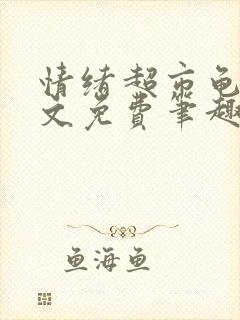 情绪超市龟
文免费笔趣
鱼海鱼